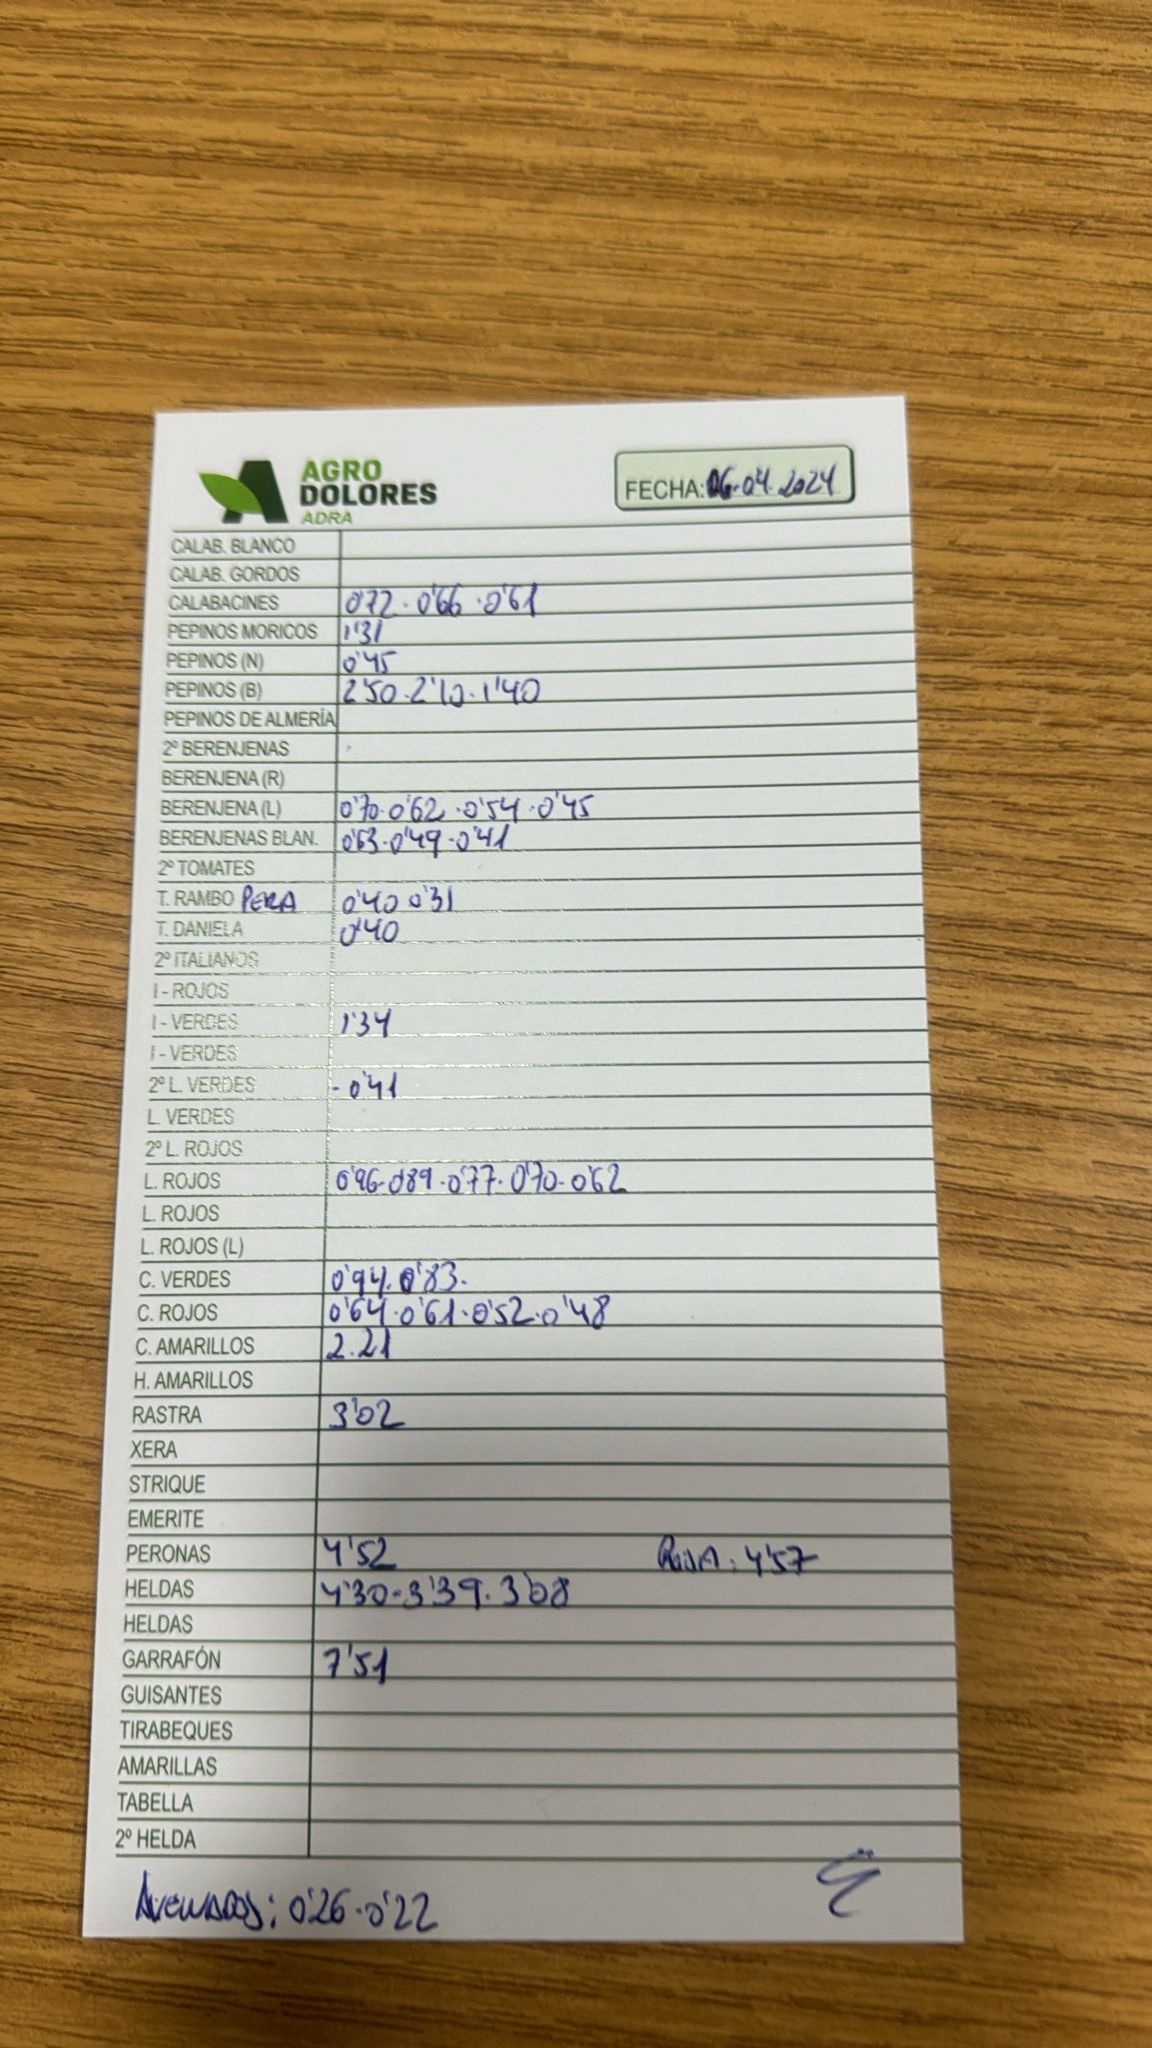 AGRO
DOLORES
ADRA
FECHA: 06.04.2024
CALAB. BLANCO
CALAB. GORDOS
CALABACINES 0'72 · 0'66 · 0'61
PEPINOS MORICOS 1'31
PEPINOS (N) 0'45
PEPINOS (B) 2'50 · 2'10 · 1'40
PEPINOS DE ALMERÍA
2º BERENJENAS
BERENJENA (R)
BERENJENA (L) 0'70 · 0'62 · 0'54 · 0'45
BERENJENAS BLAN. 0'63 · 0'49 · 0'41
2º TOMATES
T. RAMBO PERA 0'40 0'31
T. DANIELA 0'40
2º ITALIANOS
I - ROJOS
I - VERDES 1'34
I - VERDES
2º L. VERDES - 0'41
L. VERDES
2º L. ROJOS
L. ROJOS 0'96 · 0'89 · 0'77 · 0'70 · 0'62
L. ROJOS
L. ROJOS (L)
C. VERDES 0'94 · 0'83 ·
C. ROJOS 0'64 · 0'61 · 0'52 · 0'48
C. AMARILLOS 2.21
H. AMARILLOS
RASTRA 3'02
XERA
STRIQUE
EMERITE
PERONAS 4'52 ROJA: 4'57
HELDAS 4'30 - 3'39 · 3'08
HELDAS
GARRAFÓN 7'51
GUISANTES
TIRABEQUES
AMARILLAS
TABELLA
2º HELDA
0'26 · 0'22